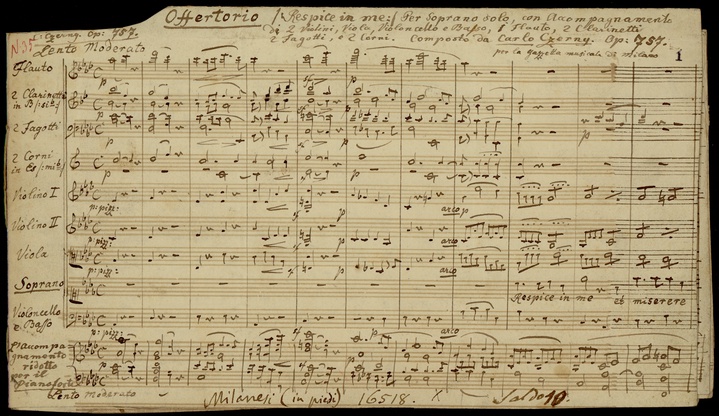 Offertorio /:Respice in me:/ Per Soprano solo, con Acompagnamento
Di 2 Violini, Viola, Violoncello e Basso, 1 Flauto, 2 Clarinetti
2 Fagotti, e 2 Corni. Composto da Carlo Czerny. Op: 757.
per la Gazzetta musicale di Milano
1
N. 35
C: Czerny. Op: 757.
Lento Moderato
Flauto
2 Clarinetti
in B
2 Fagotti
p
2 Corni
in Es
Violino I
p: pizz:
arco p
Violino II
p: pizz:
p
arco
Viola
p: pizz:
p
arco
Soprano
Respice in me et miserere
Violoncello
e Basso
p: pizz:
p
arco
l'accompa
gnamento
ridotto
per il
pianoforte
Lento Moderato
Milanesi (in piedi) 16518.